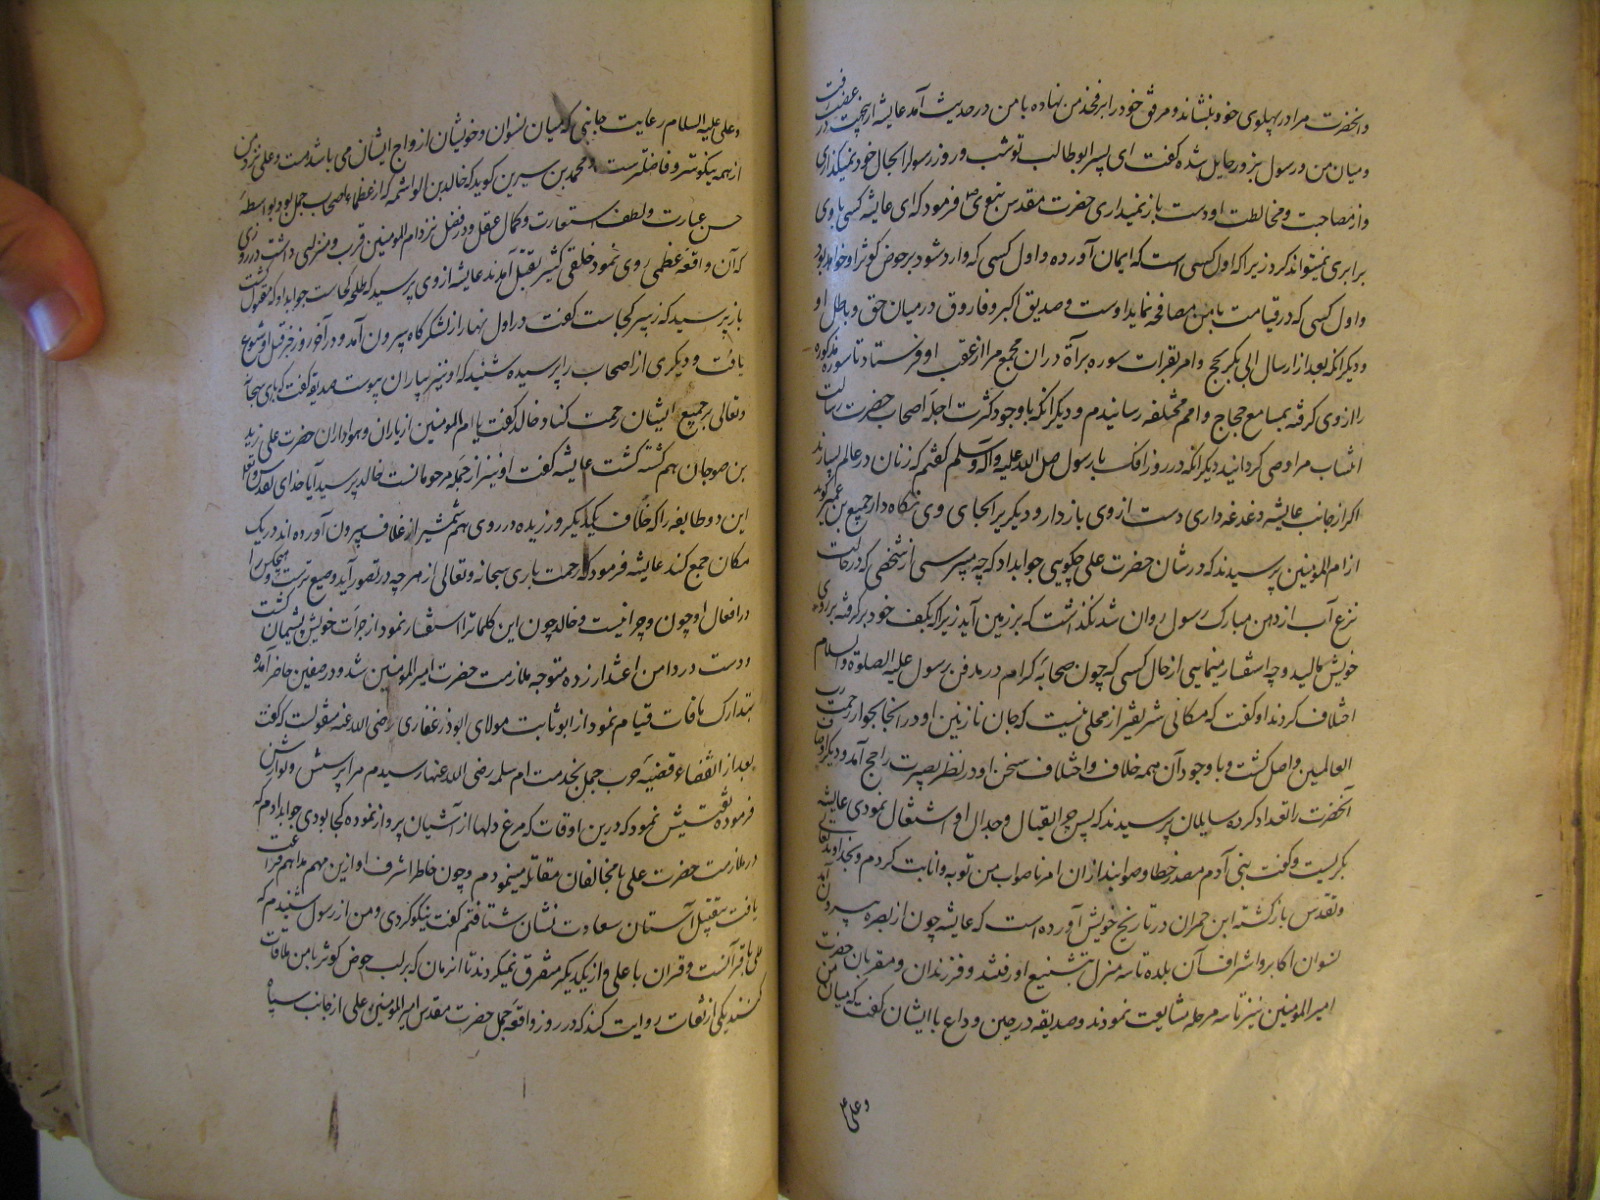 وانحضرت مرا در پهلوی خود بنشاند و مرفق خود را بر فخذ من نهاده با من در حدیث آمد عایشه ازین جهت در غضب رفت
و میان من و رسول بزور حایل شده کفت ای پسر ابو طالب تو شب و روز رسول را بحال خود نمیکذاری
و از مصاحبت و مخالطت او دست باز نمیداری حضرت مقدس نبوی ص فرمود که ای عایشه کسی با وی
برابری نمیتواند کرد زیرا که اول کسی است که ایمان آورده و اول کسی که وارد شود بر حوض کوثر او خواهد بود
و اول کسی که در قیامت با من مصافحه نماید اوست و صدیق اکبر و فاروق در میان حق و باطل او
و دیکر انکه بعد از ارسال ابی بکر بحج و امر بقرات سوره برآة دران مجمع مرا از عقب او فرستاد تا سوره مذکوره
را از وی کرفته بمسامع حجاج و امم مختلفه رسانیدم و دیکر انکه با وجود کثرت اجله اصحاب حضرت رسالت
انتساب مرا وصی کردانید دیکر انکه در روز افک با رسول صلی الله علیه و آله وسلم کفتم که زنان در عالم بسیارند
اکر از جانب عایشه دغدغه داری دست از وی باز دار و دیکریرا بجای وی نکاه دار جمیع بن عمیر کوید
از ام المومنین پرسیدند که در شان حضرت علی چکویی جواب داد که چه میپرسی از شخصی که در حالت
نزع آب از دهن مبارک رسول روان شد نکذاشت که بر زمین آید زیرا که بکف خود بر کرفته بر روی
خویش مالید و چه استفسار مینمایی از حال کسی که چون صحابه کرام در مدفن رسول علیه الصلوة والسلام
اختلاف کردند او کفت که مکانی شریفتر از محلی نیست که جان نازنین او در انجا بجوار رحمت رب
العالمین واصل کشت و با وجود آن همه خلاف و اختلاف سخن او در نظر بصیرت راجح آمد و دیکر
آنحضرت را تعداد کرده سایلان پرسیدند که پس چرا بقتال و جدال او اشتغال نمودی عایشه
بکریست و کفت بنی آدم مصدر خطا و صوابند ازان امر ناصواب من توبه و انابت کردم و بخداوند تعالی
و تقدس باز کشته ابن حمران در تاریخ خویش آورده است که عایشه چون از بصره بیرون آمد
نسوان اکابر و اشراف آن بلده تا سه منزل بتشییع او رفتند و فرزندان و مقربان حضرت
امیر المومنین نیز تا سه مرحله مشایعت نمودند و صدیقه در حین وداع با ایشان کفت که میان من
و علی
و علی علیه السلام رعایت جانبی که میان نسوان و خویشان ازواج ایشان می باشد هست و علی نزد من
از همه نیکوتر و فاضلتر است و محمد بن سیرین کوید که خالد بن الواشمه که از عظماء اصحاب جمل بود بواسطه
حسن عبارت و لطف استعارت و کمال عقل و وفور فضل نزد ام المومنین قرب و منزلتی داشت در روزی
که آن واقعه عظمی روی نمود خلقی کثیر بقتل آمدند عایشه از وی پرسید که طلحه کجاست جواب داد که مقتول کشت
باز پرسید که زبیر کجاست کفت در اول نهار از لشکرکاه بیرون آمد و در آخر روز خبر قتل او شیوع
یافت و دیکری از اصحاب را پرسیده شنید که او نیز بیاران پیوست صدیقه کفت که باری سبحانه
و تعالی بر جمیع ایشان رحمت کناد خالد کفت یا ام المومنین از یاران و هواداران حضرت علی زید
بن صوحان هم کشته کشت عایشه کفت او نیز از جمله مرحومانست خالد پرسید آیا خدای تقدس و تعالی
این دو طایفه را که خلاف یکدیکر ورزیده در روی هم شمشیر از غلاف بیرون آورده اند در یک
مکان جمع کند عایشه فرمود که رحمت باری سبحانه و تعالی از هر چه در تصور آید وسیع ترست و هیچکس را
در افعال او چون و چرا نیست و خالد چون این کلمات را استفسار نمود از جرات خویش پشیمان کشت
و دست در دامن اعتذار زده متوجه ملازمت حضرت امیر المومنین شد و در صفین حاضر آمده
بتدارک مافات قیام نمود از ابو ثابت مولای ابوذر غفاری رضی الله عنه منقولست که کفت
بعد از انقضاء قضیه حرب جمل بخدمت ام سلمه رضی الله عنها رسیدم مرا پرسش و نوازش
فرموده تفتیش نمود که درین اوقات که مرغ دلها از آشیان پرواز نموده کجا بودی جواب دادم که
در ملازمت حضرت علی با مخالفان مقاتله مینمودم و چون خاطر اشرف او ازین مهم مداهم فراغت
یافت بتقبیل آستان سعادت نشان شتافتم کفت نیکو کردی و من از رسول شنیدم که
علی با قرآنست و قران با علی و از یکدیکر متفرق نمیکردند تا انزمان که بر لب حوض کوثر با من ملاقات
کنند یکی از ثقات روایت کند که در روز واقعه جمل حضرت مقدس امیر المومنین علی از جانب سپاه